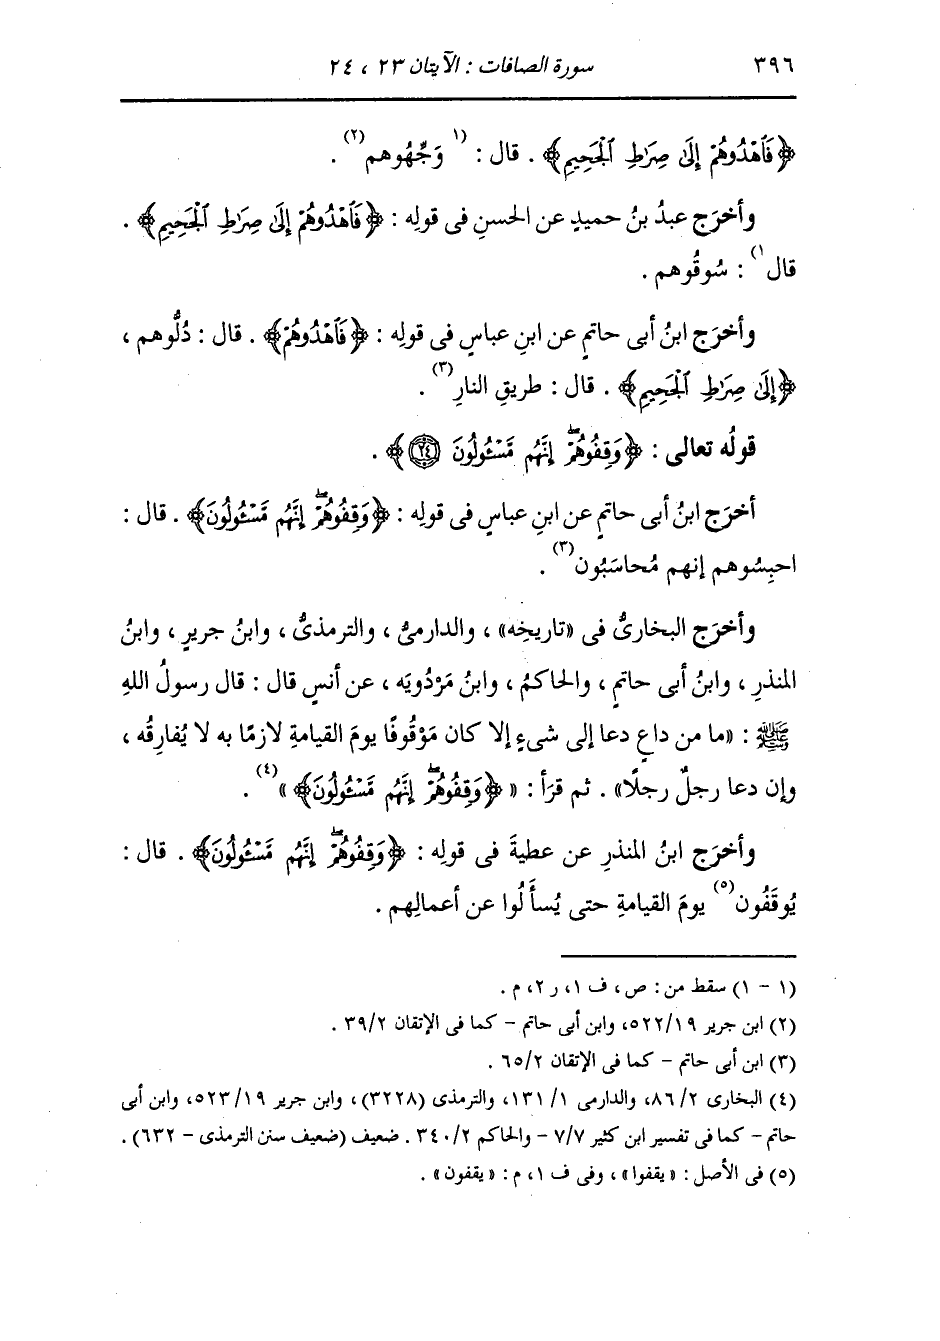 ٣٩٦ سورة الصافات : الآيتان ٢٣ ، ٢٤
﴿فَٱهْدُوهُمْ إِلَىٰ صِرَٰطِ ٱلْجَحِيمِ﴾ . قال : (١ وَجِّهُوهم(٢) .
وأخرَج عبدُ بنُ حميدٍ عن الحسنِ فى قولِه : ﴿فَٱهْدُوهُمْ إِلَىٰ صِرَٰطِ ٱلْجَحِيمِ﴾ .
قال ١) : سُوقُوهم .
وأخرَج ابنُ أبى حاتمٍ عن ابنِ عباسٍ فى قولِه : ﴿فَٱهْدُوهُمْ﴾ . قال : دُلُّوهم ،
﴿إِلَىٰ صِرَٰطِ ٱلْجَحِيمِ﴾ . قال : طريقِ النارِ(٣) .
قولُه تعالى : ﴿وَقِفُوهُمْۖ إِنَّهُم مَّسْـُٔولُونَ ٢٤﴾ .
أخرَج ابنُ أبى حاتمٍ عن ابنِ عباسٍ فى قولِه : ﴿وَقِفُوهُمْۖ إِنَّهُم مَّسْـُٔولُونَ﴾ . قال :
احبِسُوهم إنهم مُحاسَبُون(٣) .
وأخرَج البخارىُّ فى «تاريخِه» ، والدارمىُّ ، والترمذىُّ ، وابنُ جريرٍ ، وابنُ
المنذرِ ، وابنُ أبى حاتمٍ ، والحاكمُ ، وابنُ مَرْدُويَه ، عن أنسٍ قال : قال رسولُ اللهِ
ﷺ : «ما من داعٍ دعا إلى شىءٍ إلا كان مَوْقُوفًا يومَ القيامةِ لازمًا به لا يُفارِقُه ،
وإن دعا رجلٌ رجلًا» . ثم قرَأ : «﴿وَقِفُوهُمْۖ إِنَّهُم مَّسْـُٔولُونَ﴾»(٤) .
وأخرَج ابنُ المنذرِ عن عطيةَ فى قولِه : ﴿وَقِفُوهُمْۖ إِنَّهُم مَّسْـُٔولُونَ﴾ . قال :
يُوقَفُون(٥) يومَ القيامةِ حتى يُسأَلُوا عن أعمالِهم .
(١ - ١) سقط من : ص ، ف ١، ر ٢، م .
(٢) ابن جرير ٥٢٢/١٩، وابن أبى حاتم - كما فى الإتقان ٣٩/٢ .
(٣) ابن أبى حاتم - كما فى الإتقان ٦٥/٢ .
(٤) البخارى ٨٦/٢، والدارمى ١٣١/١، والترمذى (٣٢٢٨) ، وابن جرير ٥٢٣/١٩، وابن أبى
حاتم - كما فى تفسير ابن كثير ٧/٧ - والحاكم ٣٤٠/٢ . ضعيف (ضعيف سنن الترمذى - ٦٣٢) .
(٥) فى الأصل : «يقفوا» ، وفى ف ١، م : «يقفون» .